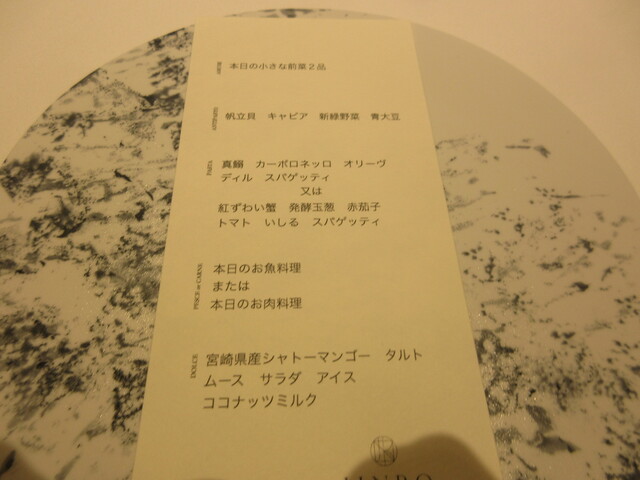 本日の小さな前菜2品
帆立貝　キャビア　新緑野菜　青大豆
真鰯　カーボロネッロ　オリーヴ
ディル　スパゲッティ
又は
紅ずわい蟹　発酵玉葱　赤茄子
トマト　いしる　スパゲッティ
PESCE or CARNE
本日のお魚料理
または
本日のお肉料理
DOLCE
宮崎県産シャトーマンゴー　タルト
ムース　サラダ　アイス
ココナッツミルク